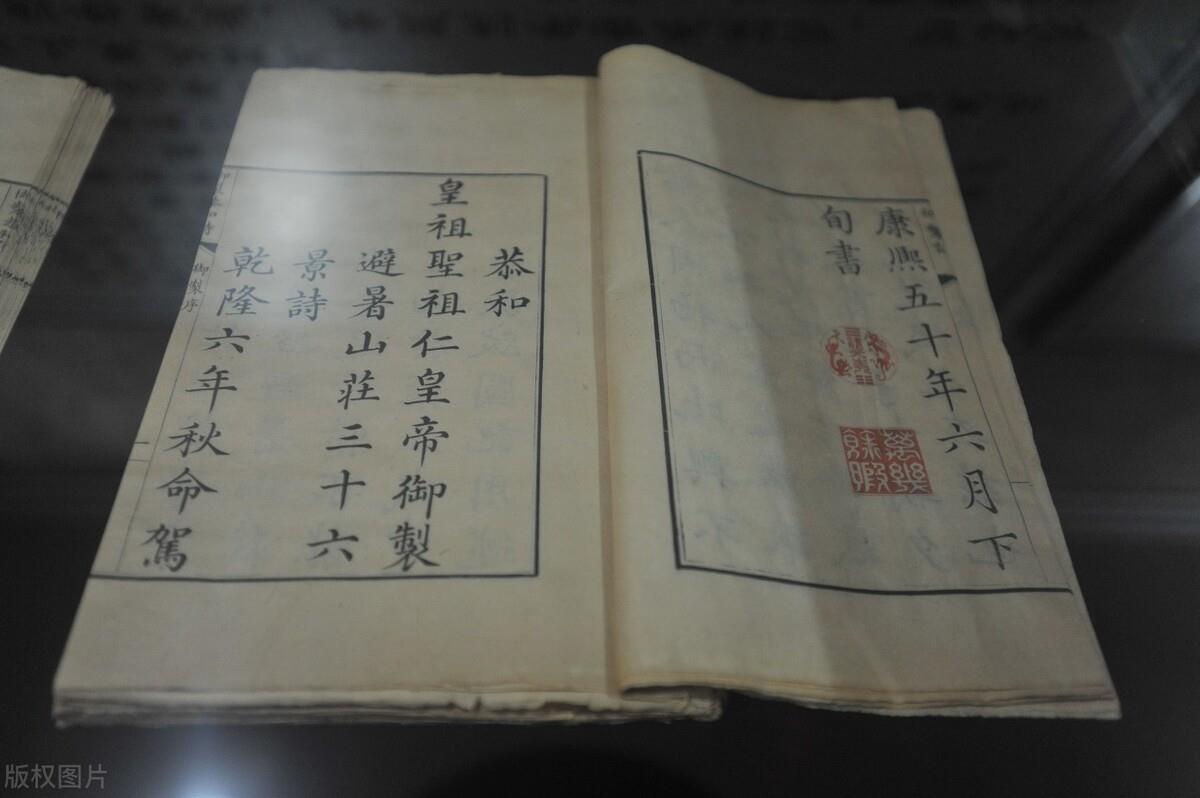 康熈五十年六月下
旬書
萬幾
餘暇
恭和
皇祖聖祖仁皇帝御製
避暑山莊三十六
景詩
乾隆六年秋命駕
御製序
版权图片